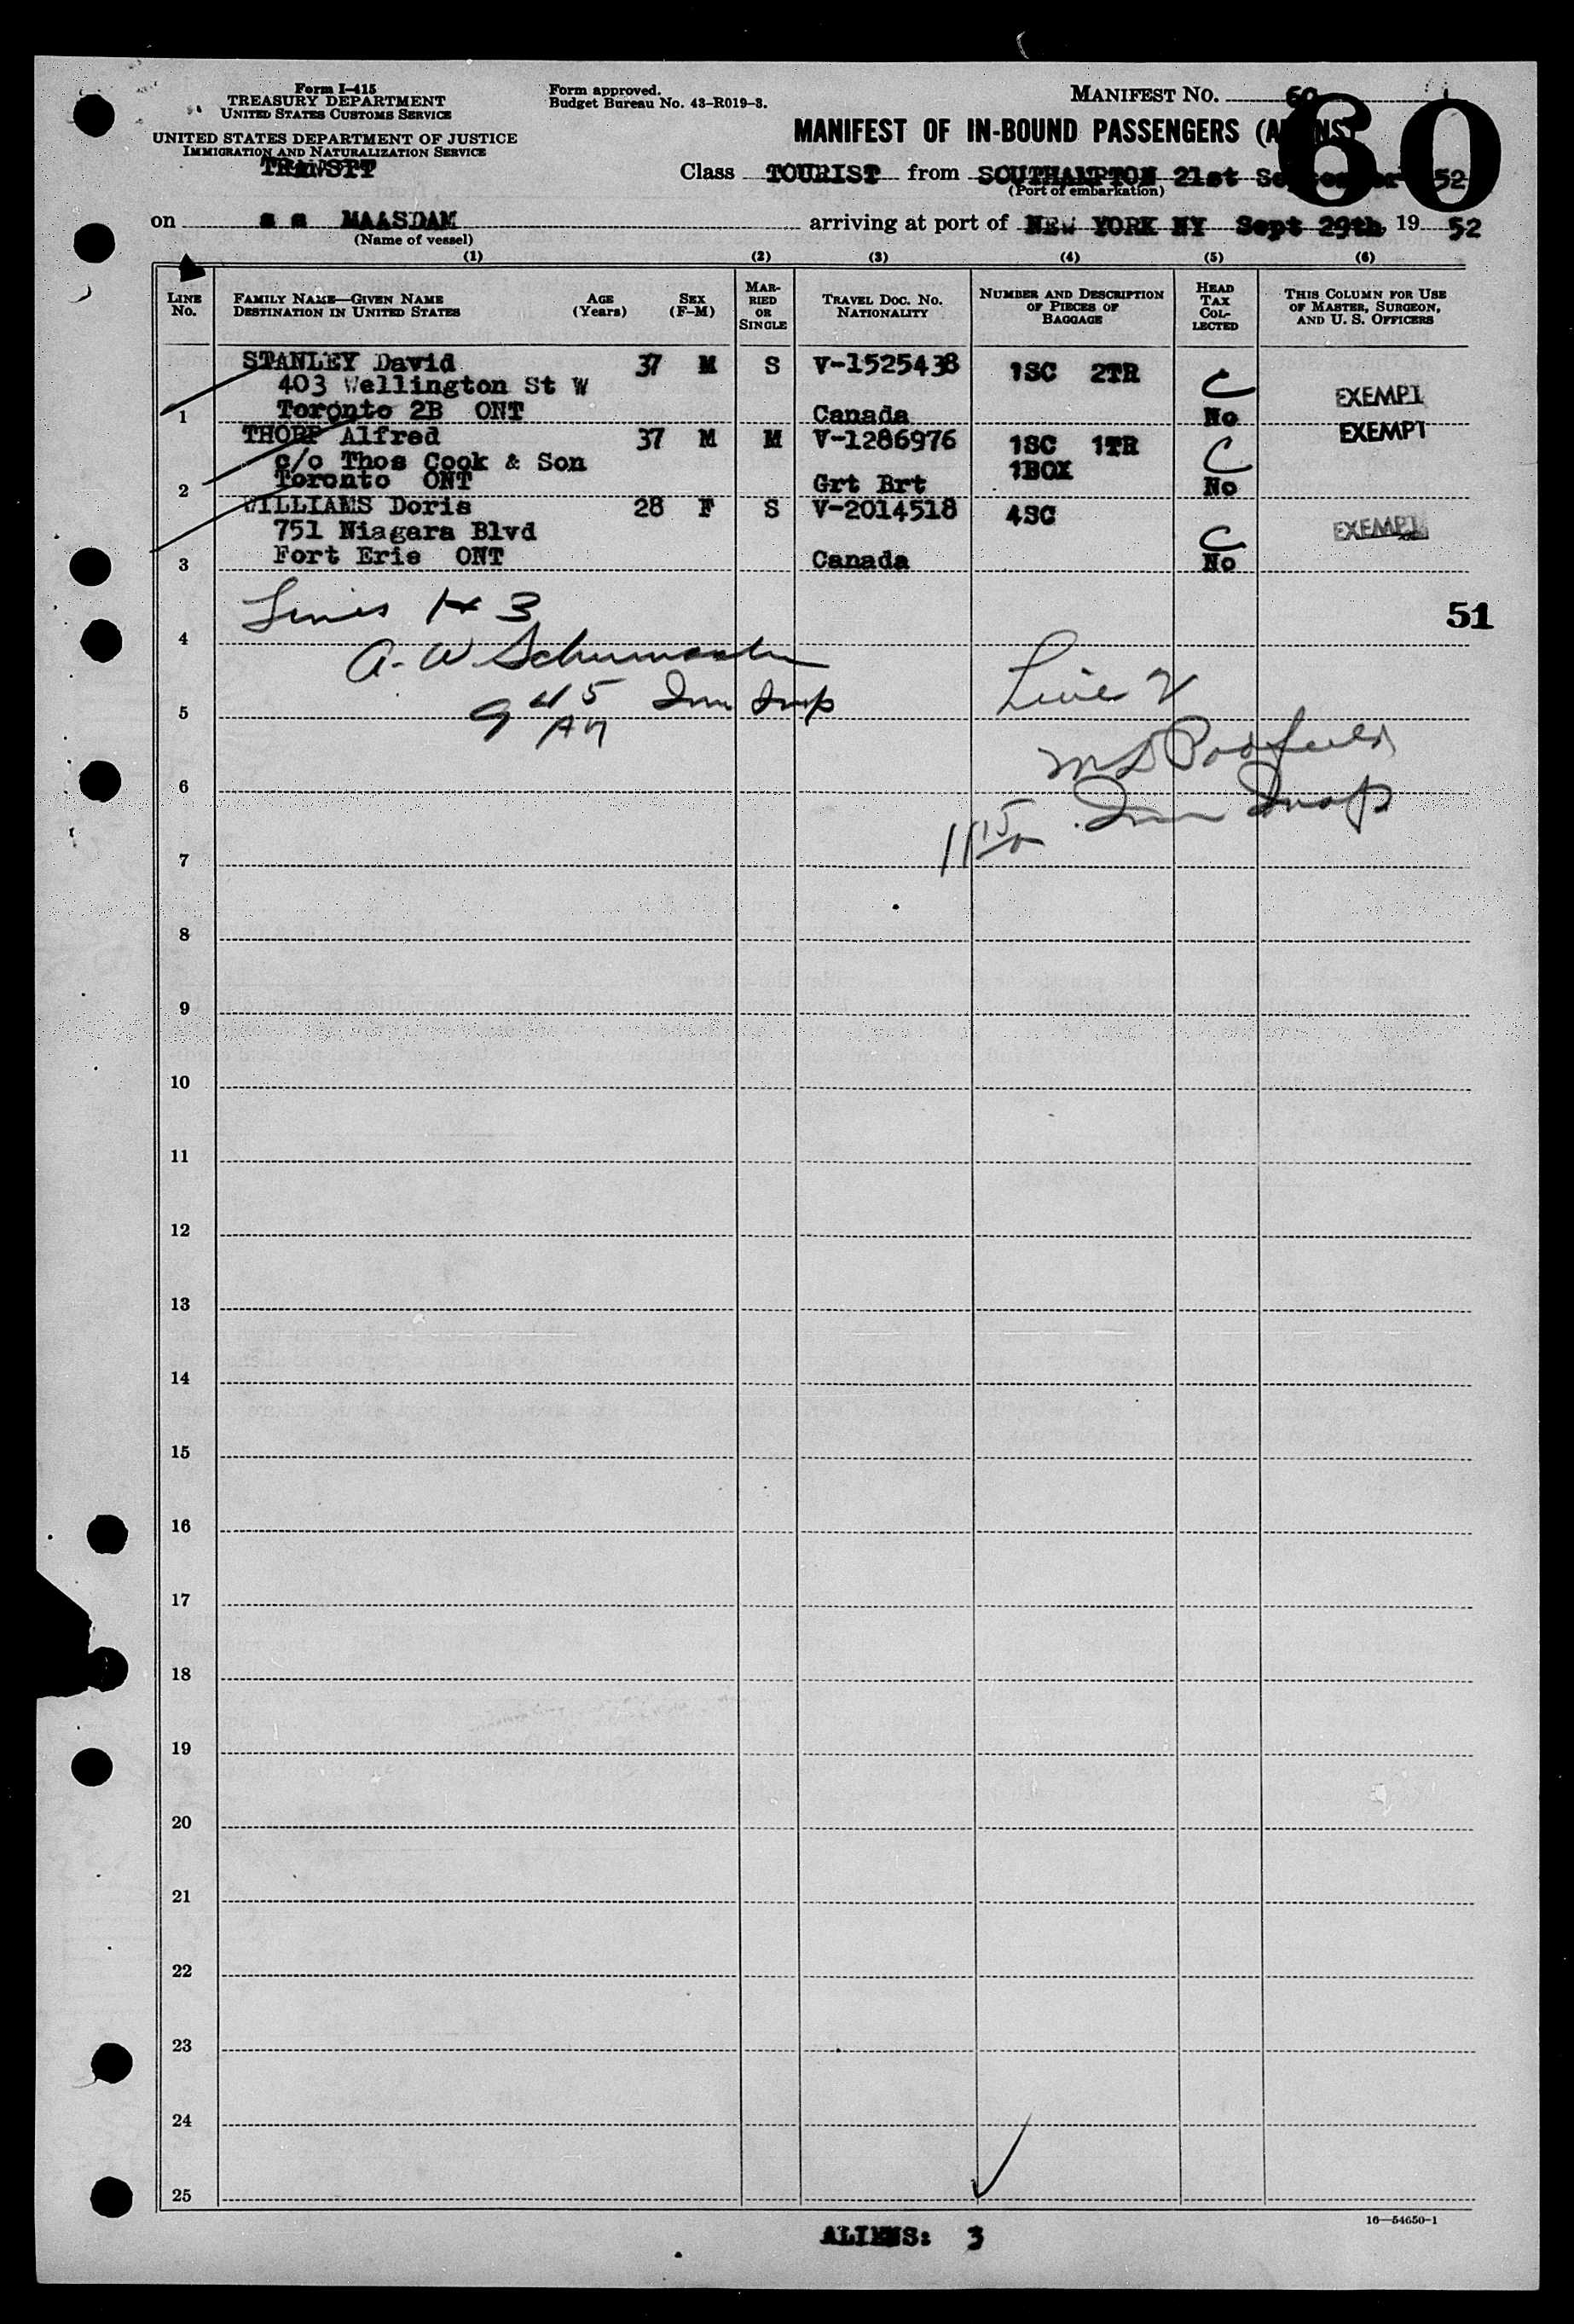 Form I-415
TREASURY DEPARTMENT
UNITED STATES CUSTOMS SERVICE
UNITED STATES DEPARTMENT OF JUSTICE
IMMIGRATION AND NATURALIZATION SERVICE
Form approved.
Budget Bureau No. 43-R019-3.
MANIFEST NO. 60
60
MANIFEST OF IN-BOUND PASSENGERS (ALIENS)
Class TOURIST from SOUTHAMPTON 21st September 52
(Port of embarkation)
on s s MAASDAM arriving at port of NEW YORK NY Sept 29th, 19 52
(Name of vessel)
(1) (2) (3) (4) (5) (6)
LINE No. FAMILY NAME—GIVEN NAME DESTINATION IN UNITED STATES AGE (Years) SEX (F-M) MARRIED OR SINGLE TRAVEL DOC. NO. NATIONALITY NUMBER AND DESCRIPTION OF PIECES OF BAGGAGE HEAD TAX COLLECTED THIS COLUMN FOR USE OF MASTER, SURGEON, AND U. S. OFFICERS
STANLEY David 37 M S V-1525438 1SC 2TR C
403 Wellington St W EXEMPT
1 Toronto 2B ONT Canada No
THORP Alfred 37 M M V-1286976 1SC 1TR C EXEMPT
c/o Thos Cook & Son 1BOX
2 Toronto ONT Grt Brt No
WILLIAMS Doris 28 F S V-2014518 4SC
751 Niagara Blvd C EXEMPT
3 Fort Erie ONT Canada No
Lines 1 + 3
51
4
A. W Schumacher
Line 2
5
9 45 AM Imm Insp
6
Imm Insp
11 15
7
8
9
10
11
12
13
14
15
16
17
18
19
20
21
22
23
24
25
16—54650-1
ALIENS: 3